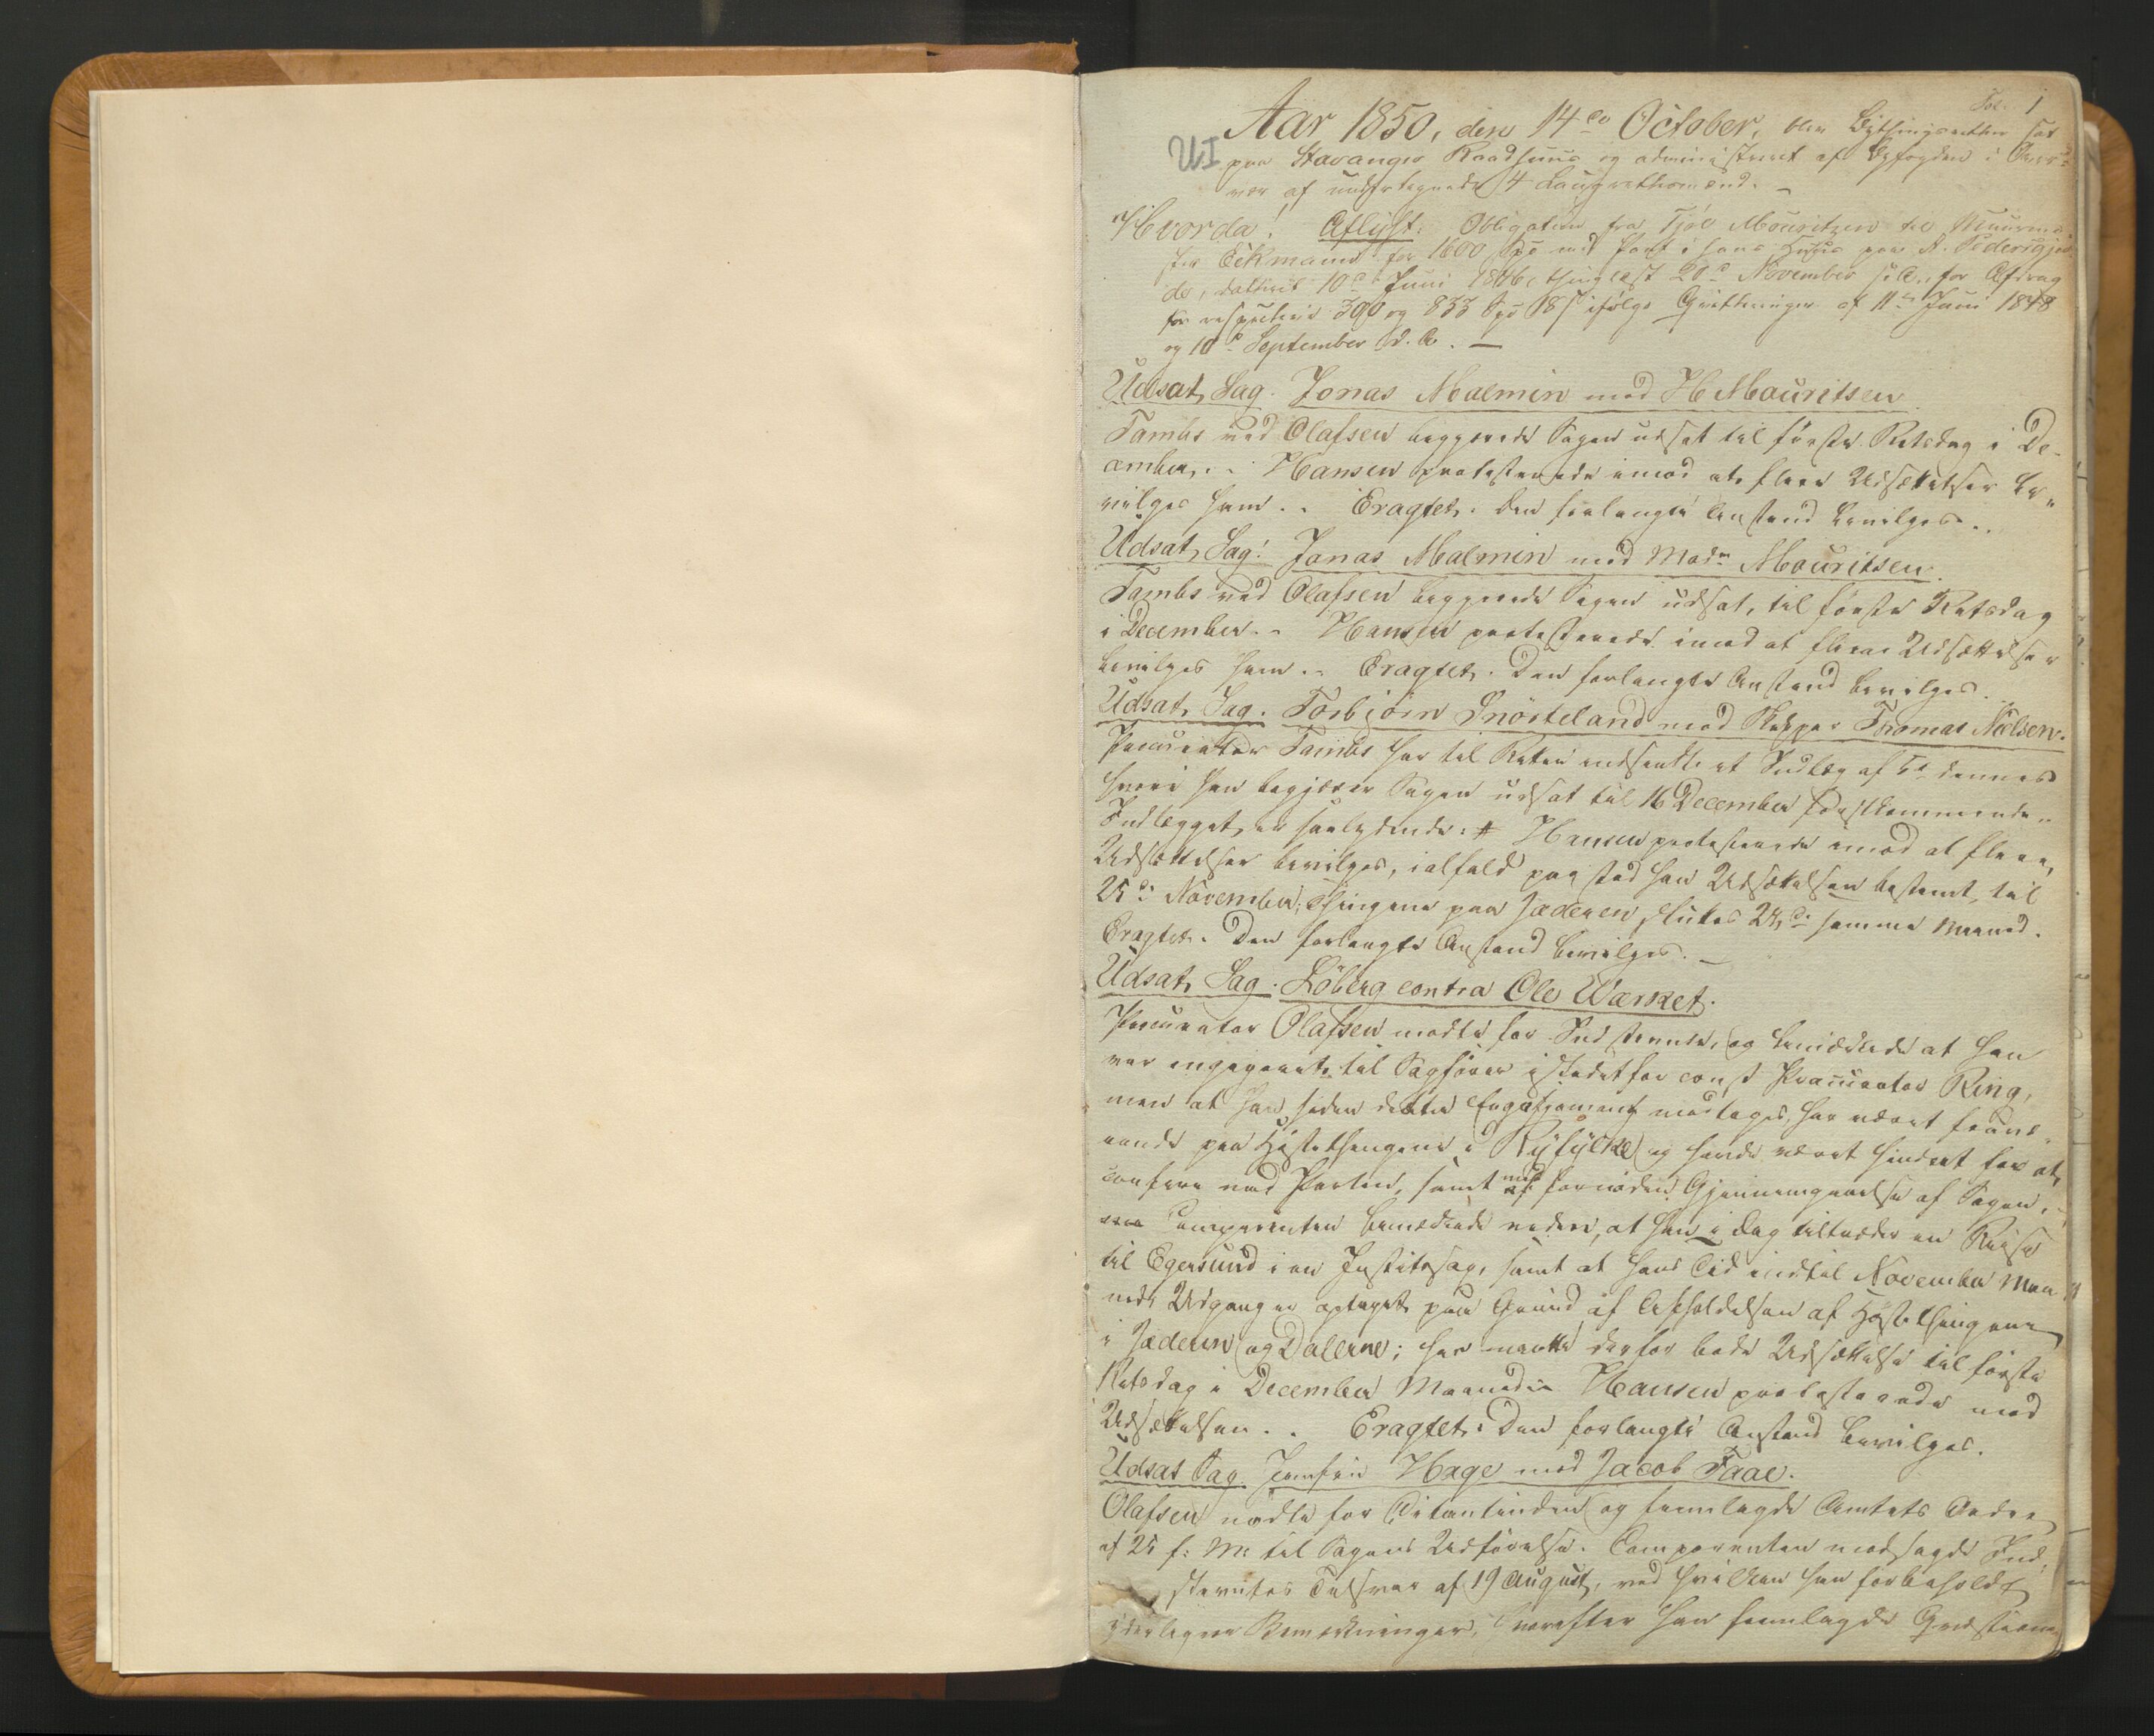 Fol. 1
Aar 1850, den 14de October, blev Bythingsretten sat
UI
paa Stavanger Raadhuus og administreret af Byfogden i Over-
vær af undertegnede 4 Laugrettesmænd. –
Hvorda! Aflyst: Obligation fra Tjøl Mouritzen til Muurme-
ster Eckmann for 1600 Spd med Pant i hans Huus paa
de, dateret 10de Juni 1846, thinglæst 20de November s. A., for Afdrag
for respective 390 og 833 Spd ifølge Qvitteringer af 11te Juni 1848
og 10de September d. A. –
Udsat Sag. Jonas Malmin mod H Mauritsen.
Tambs ved Olafsen begjærede Sagen udsat til første Retsdag i De-
cember. .. Hansen protesterede imod at flere Udsættelser be-
vilges ham. .. Eragtet. Den forlangte Anstand bevilges ..
Udsat Sag: Jonas Malmin mod Madm Mouritsen.
Tambs ved Olafsen begjærede Sagen udsat, til første Retsdag
i December. .. Hansen protesterede imod at flere Udsættelser
bevilges ham. .. Eragtet. Den forlangte Anstand bevilges.
Udsat Sag. Torbjörn Snörteland mod Skipper Thomas Nielsen.
Procurator Tambs har til Retten indsendt et Indlæg af dennes
hvori han begjærer Sagen udsat til 16 December førstkommende ..
Indlægget er saalydende: # Hansen protesterede imod at flere
Udsættelser bevilges, ialfald paastod han Udsættelsen bestemt til
25de November, Thingene paa Jæderen sluttes 23de samme Maaned.
Eragtet. Den forlangte Anstand bevilges. –
Udsat Sag. Löberg contra Ole Warket.
Procurator Olafsen mødte for Indstevnte, og bemærkede at han
var engageret til Sagfører istedetfor const Procurator Ring,
men at han siden dette Engagement modtoges, har været fravæ-
rende paa Høstethingene i Ryfylke og havde været hindret for at
conferere med Parten, samt med fornøden Gjennemgaaelse af Sagen, –
Comparenten bemærkede videre, at han i Dag tiltræder en Reise
til Egersund i en Justitssag, samt at hans Tid indtil November Maa-
neds Udgang er optaget paa Grund af Afholdelsen af Høstethingene
i Jæderen og Dalerne; han maatte derfor bede Udsættelse til første
Retsdag i December Maaned. .. Hansen protesterede mod
Udsættelsen. .. Eragtet: Den forlangte Anstand bevilges.
Udsat Sag. Jomfru Hage mod Jacob Faae.
Olafsen mødte for Citantinden og fremlagde Amtets Ordre
af 25 f: M: til Sagens Udførelse. Comparenten modsagde Ind-
stevntes Tilsvar af 19 August, ved hvilken han forbeholdt
yderligere Bemærkninger, hvorefter han fremlagde